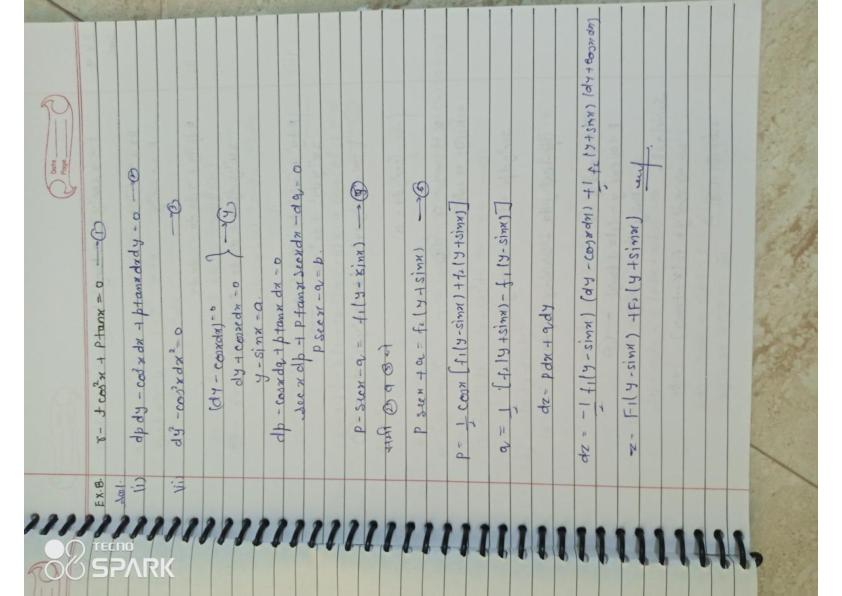 Date
Page
EX.8. r - t cos²x + p tanx = 0 →①
Sol.
(i) dp dy - cos²x dx + p tanx dx dy = 0 →②
(ii) dy² - cos²x dx² = 0 →③
(dy - cosx dx) = 0
dy + cosx dx = 0 } →④
y - sinx = a
dp - cosx dq + p tanx dx = 0
sec x dp + p tanx secx dx - dq = 0
p secx - q = b.
p - secx - q = f₁(y - sinx) →
p secx + q = f₂(y + sinx) →
p = 1/2 cosx [f₁(y - sinx) + f₂(y + sinx)]
q = 1/2 [f₂(y + sinx) - f₁(y - sinx)]
dz = p dx + q dy
dz = -1/2 f₁(y - sinx) (dy - cosx dx) + 1/2 f₂(y + sinx) (dy + cosx dx)
z = F₁(y - sinx) + F₂(y + sinx)
TECNO
SPARK